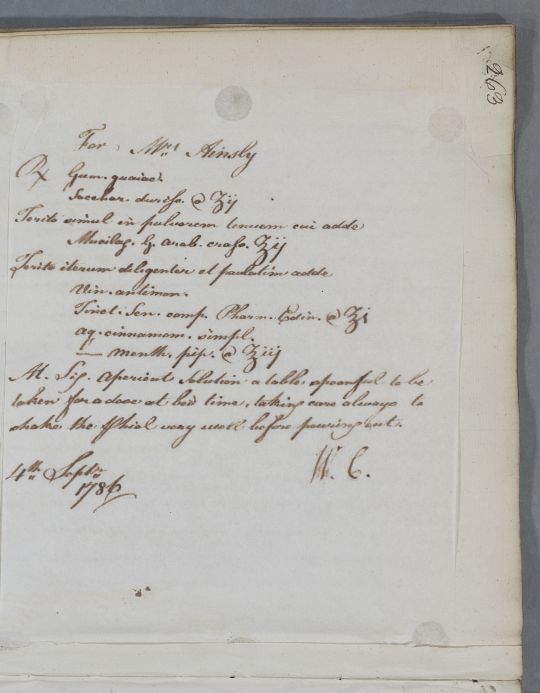 263
For Mrs Ainsly
℞ Gum. guaiac.
Sacchar. duriss. @ ʒij
Terito simul in pulverem tenuem cui adde
Mucilag. G. arab. crass. ʒij
Terito iterum diligenter et paulatim adde
Vin. antimon.
Tinct. Sen. comp. Pharm. Edin. @ ʒi
aq. cinnamom. simpl.
— menth. pip. @ ʒiij
M. Sig. Aperient Solution a table spoonful to be
taken for a dose at bed time, taking care always to
shake the Phial very well before pouring out.
W. C.
4th Septr
1786